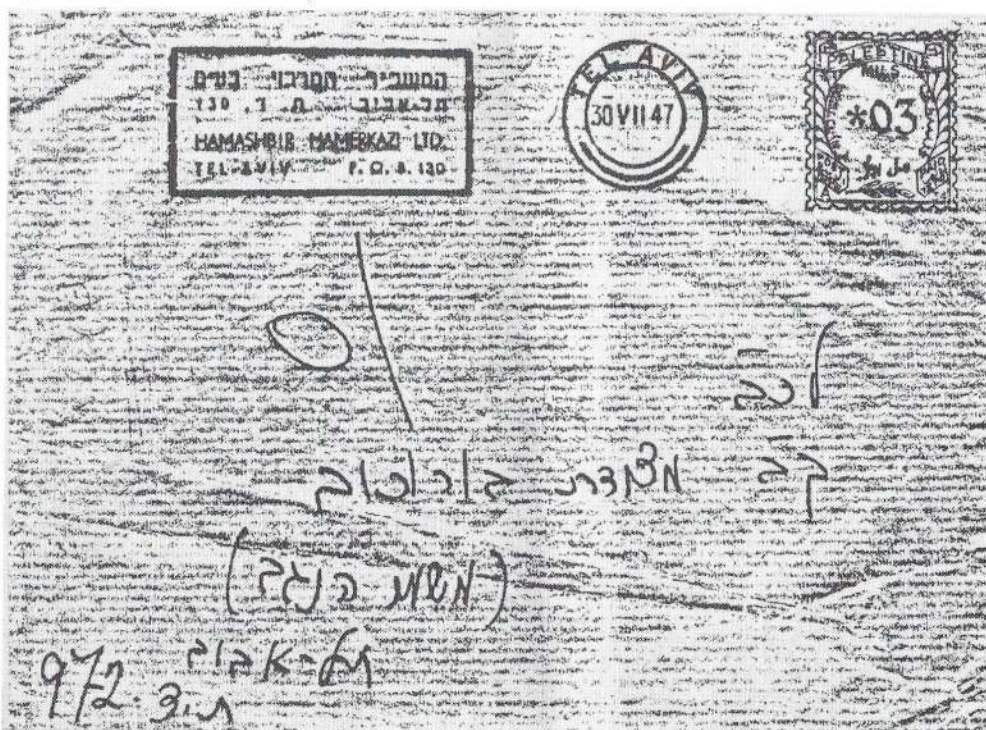 המשביר המרכזי בע"מ
תל-אביב ת. ד. 130
HAMASHBIR HAMERKAZI LTD.
TEL-AVIV P.O.B. 130
TEL AVIV
30 VII 47
PALESTINE
*03
לכב'
קב' מצודת בורוכוב
(משמר הנגב)
תל-אביב
ת.ד. 972